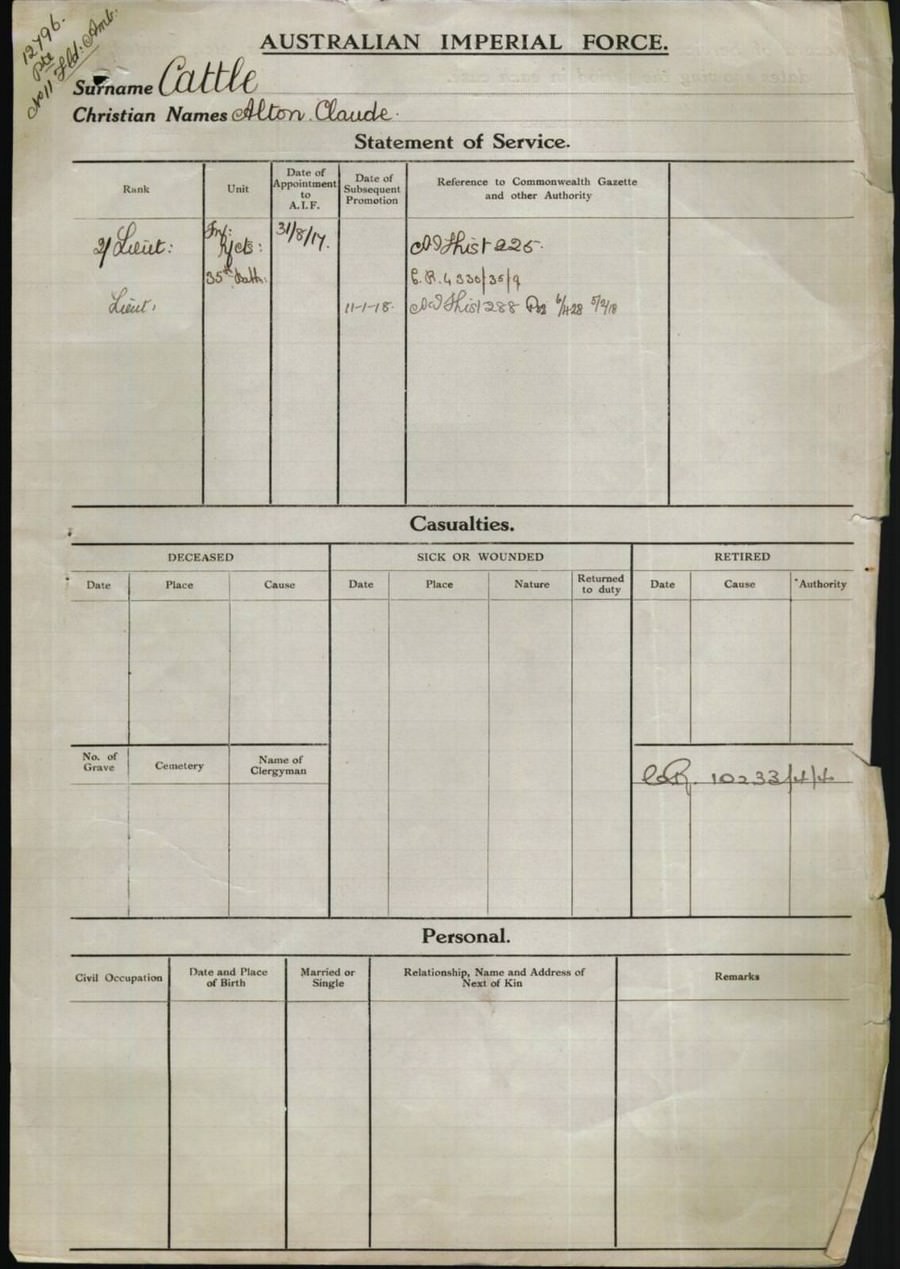 12496.
Pte
No 11 Fld. Amb.
AUSTRALIAN IMPERIAL FORCE.
Surname Cattle
Christian Names Alton Claude.
Statement of Service.
Rank
Unit
Date of Appointment to A.I.F.
Date of Subsequent Promotion
Reference to Commonwealth Gazette and other Authority
2/Lieut: Inf: R/cts: 31/8/17. List 225.
35th Battn. 4330/35/9
Lieut. 11-1-18. List 288 5/2/18
Casualties.
DECEASED
SICK OR WOUNDED
RETIRED
Date Place Cause
Date Place Nature Returned to duty
Date Cause Authority
No. of Grave
Cemetery
Name of Clergyman
10233/4/4
Personal.
Civil Occupation
Date and Place of Birth
Married or Single
Relationship, Name and Address of Next of Kin
Remarks